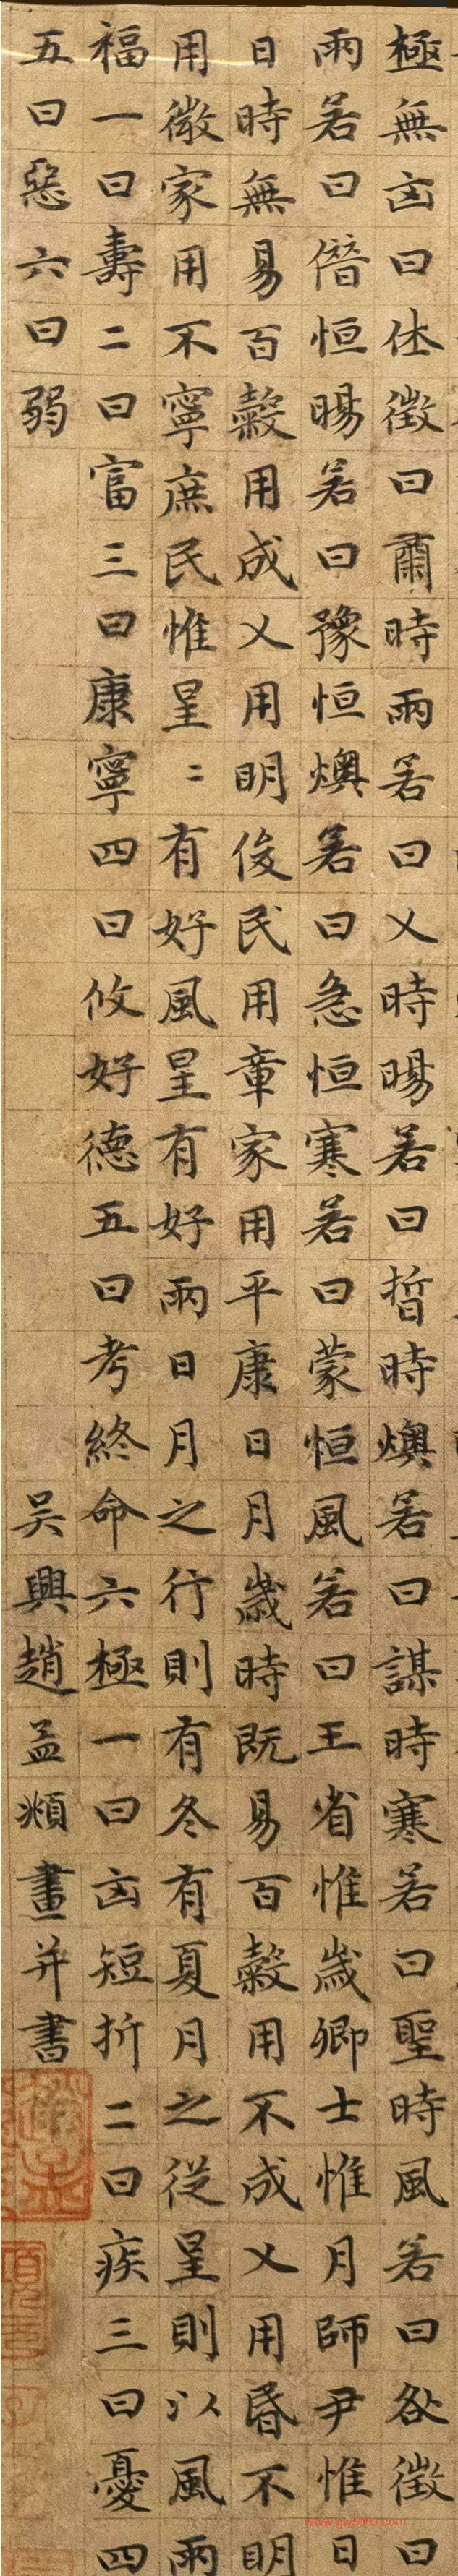 極無凶曰休徵曰肅時雨若曰乂時暘若曰晢時燠若曰謀時寒若曰聖時風若曰咎徵曰
雨若曰僭恒暘若曰豫恒燠若曰急恒寒若曰蒙恒風若曰王省惟歲卿士惟月師尹惟日
日時無易百穀用成乂用明俊民用章家用平康日月歲時既易百穀用不成乂用昏不明
用微家用不寧庶民惟星二有好風星有好雨日月之行則有冬有夏月之從星則以風雨
福一曰壽二曰富三曰康寧四曰攸好德五曰考終命六極一曰凶短折二曰疾三曰憂四
五曰惡六曰弱 吴興趙孟頫畫并書